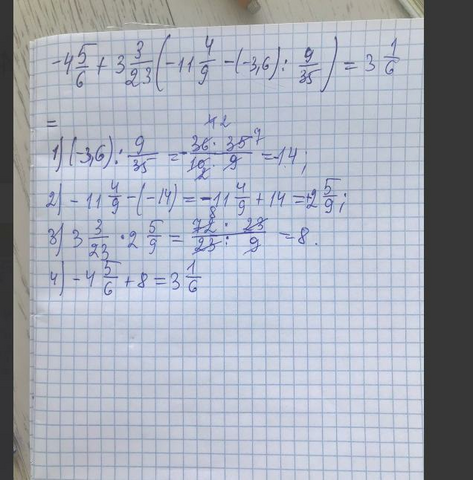 -4 5/6 + 3 3/23 (-11 4/9 - (-3,6) : 9/35) = 3 1/6
=
1) (-3,6) : 9/35 = -36 · 35 7/10 · 9 = -14;
2) -11 4/9 - (-14) = -11 4/9 + 14 = 2 5/9;
3) 3 3/23 · 2 5/9 = 72 : 23/23 : 9 = 8.
4) -4 5/6 + 8 = 3 1/6